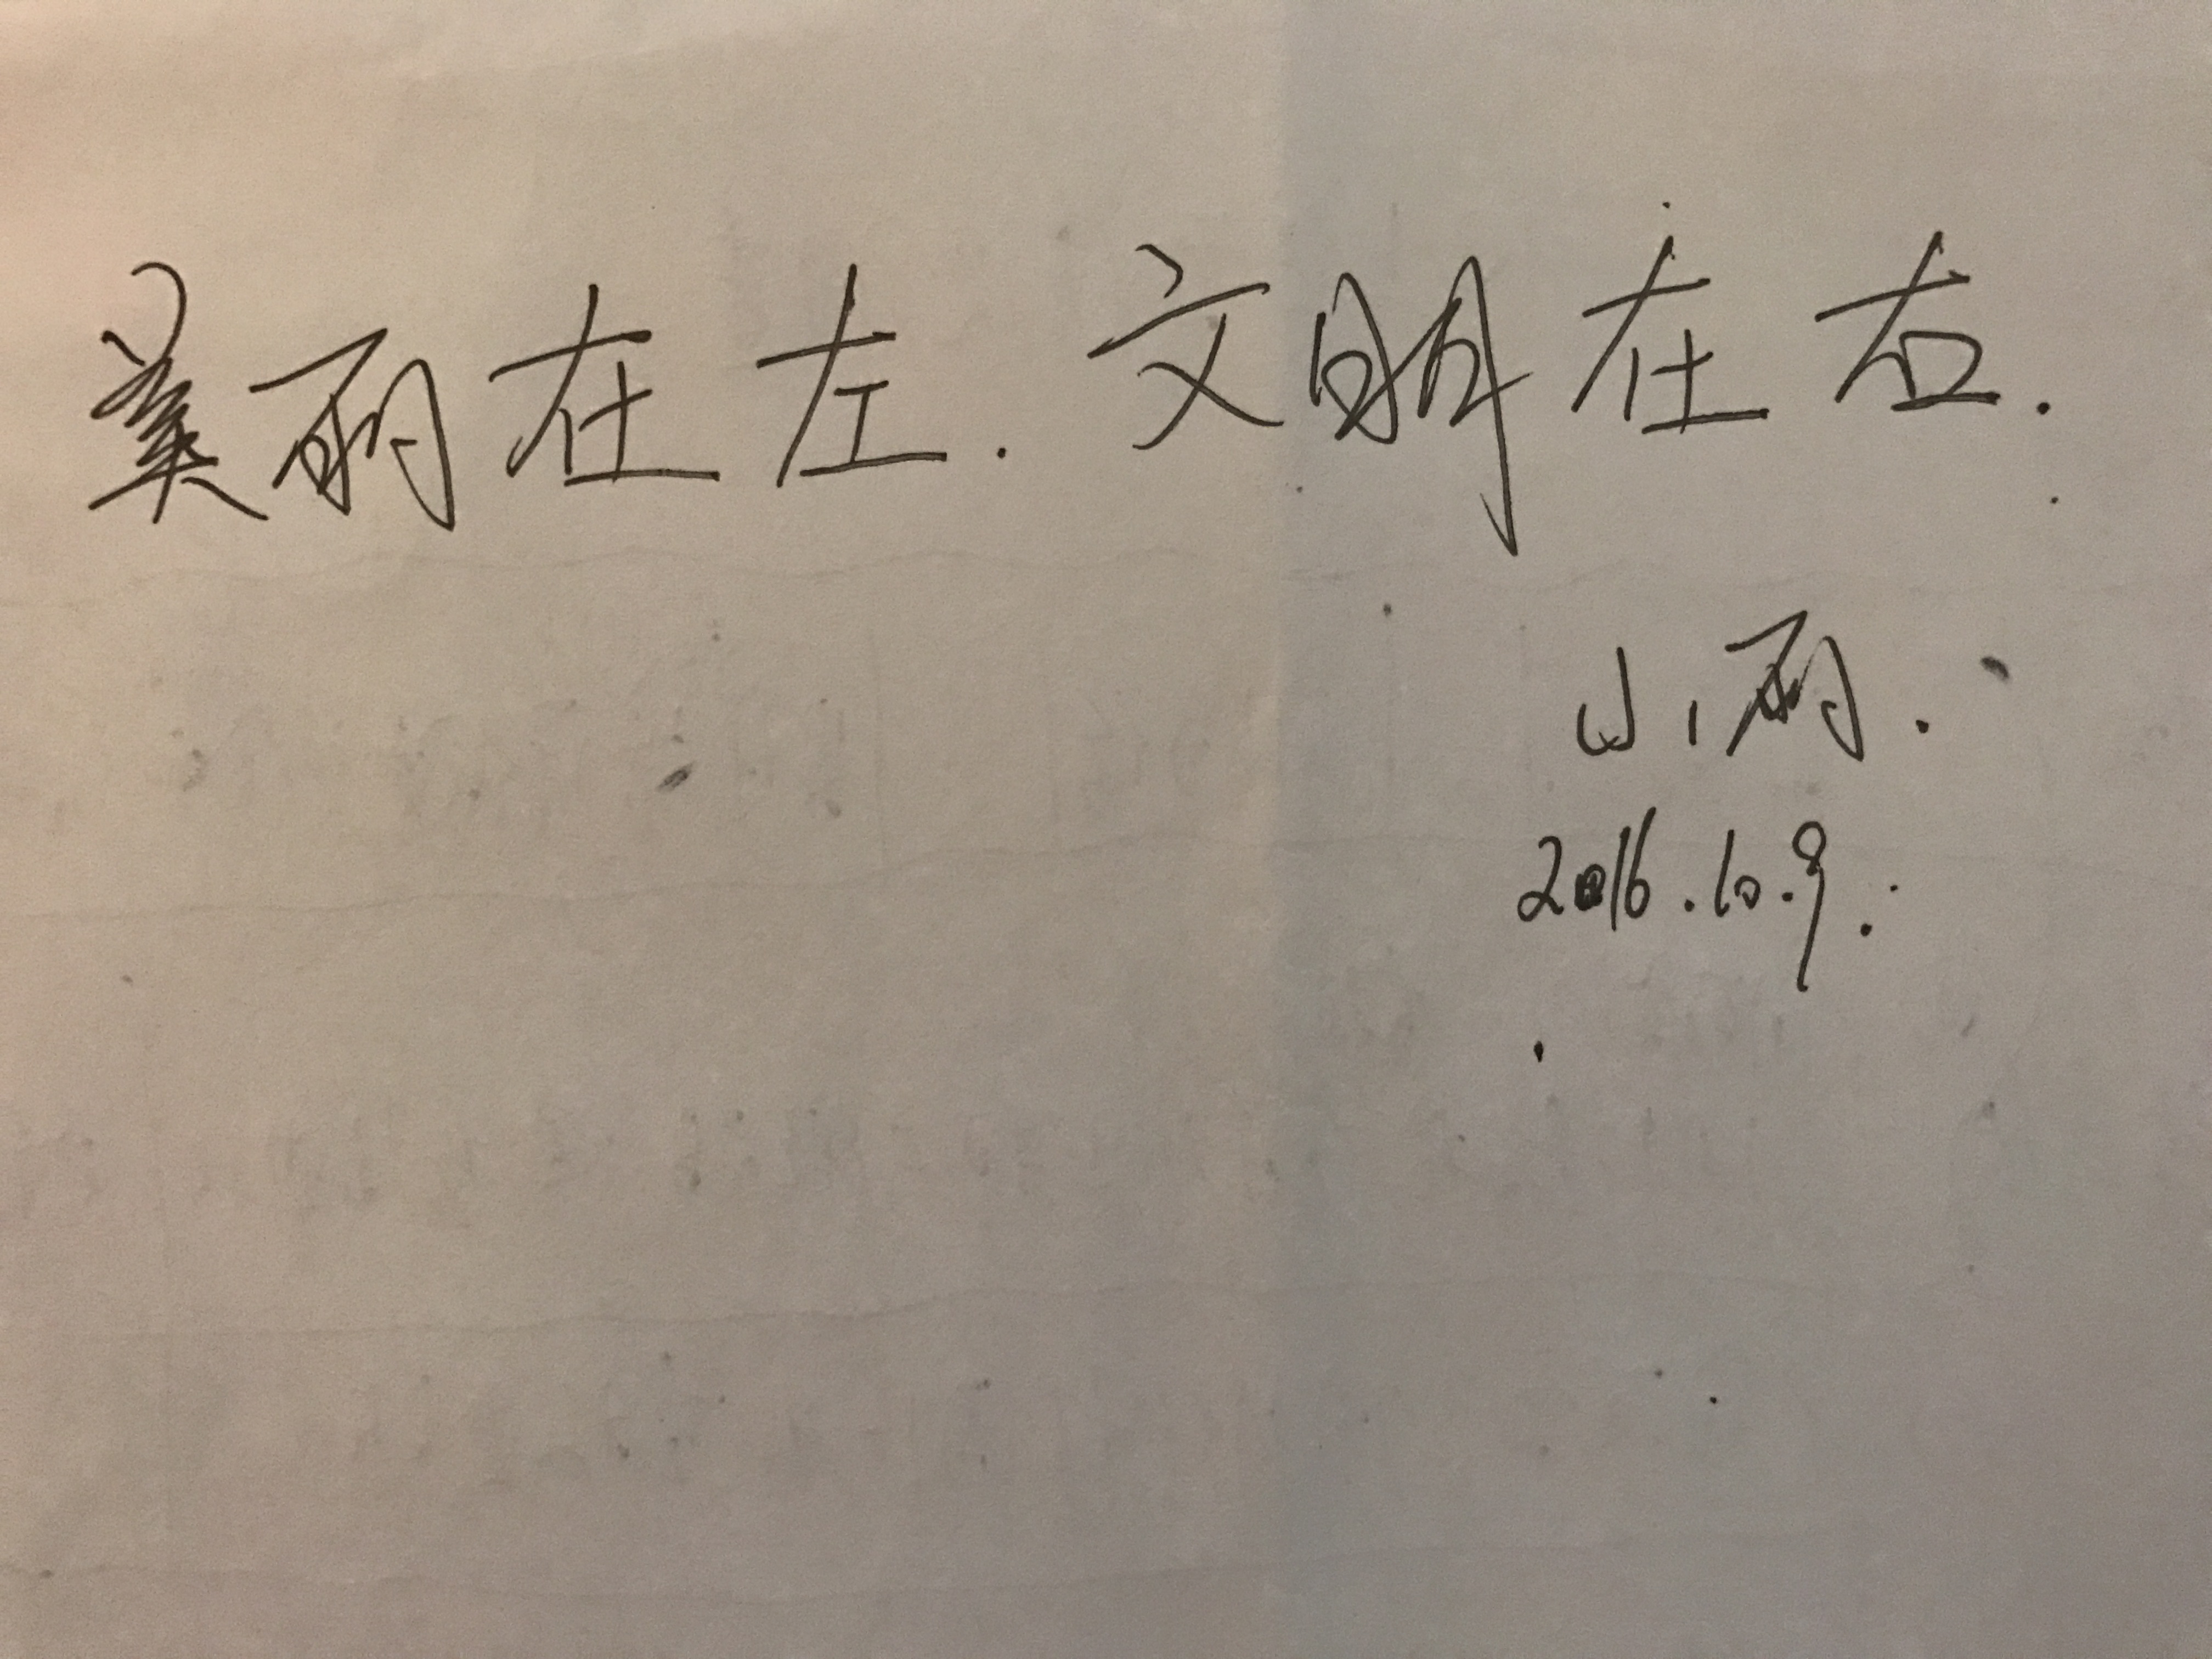 美丽在左.文明在右.
小雨.
2016.10.9.